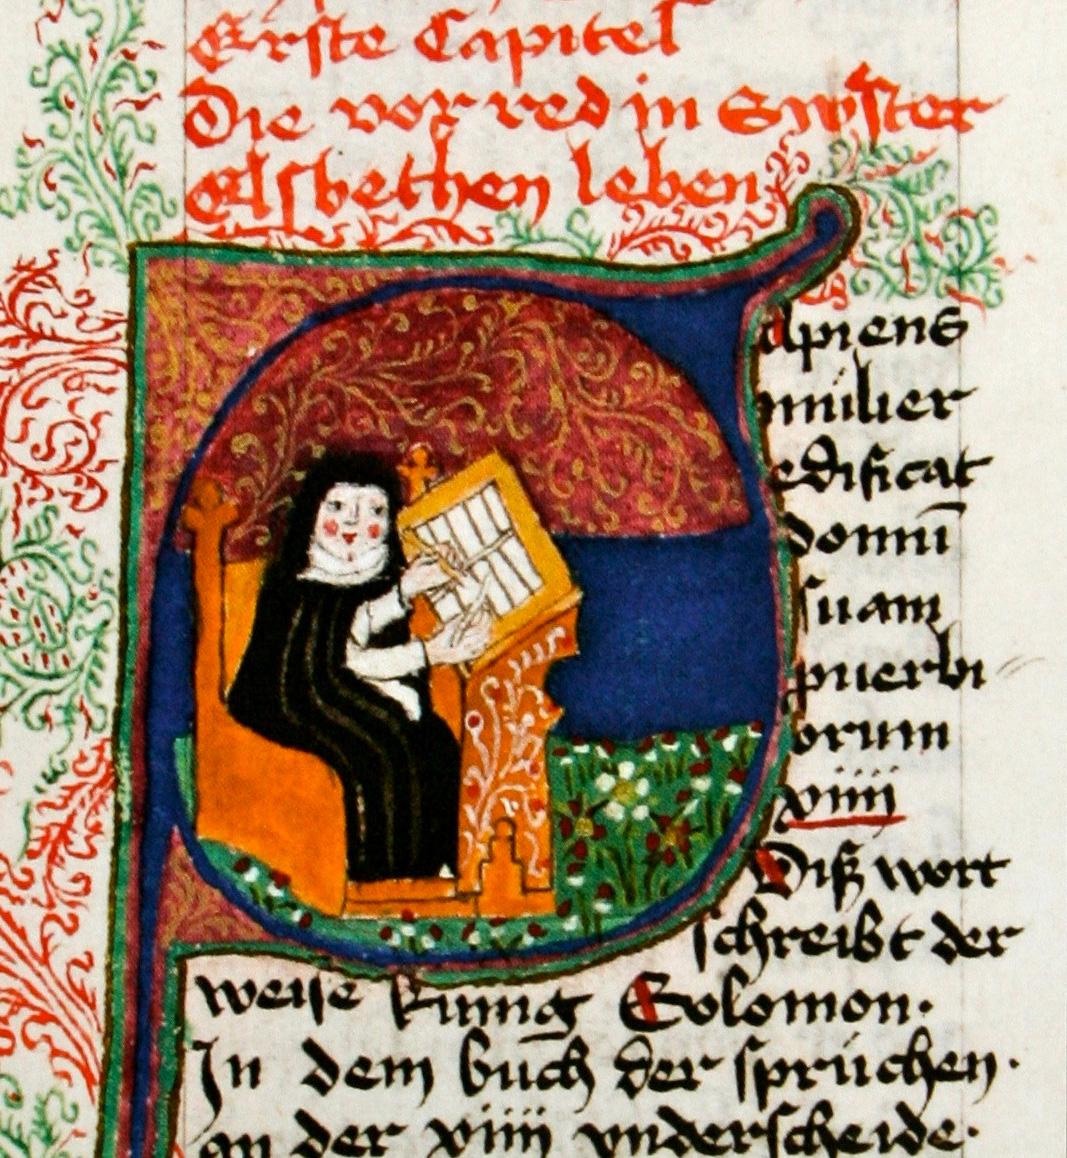 Erste Capitel
Die vor red in Swster
Elsbethen leben
S
apiens
mulier
edificat
domū
suam
puerbi
orum
xiiii
Diß wort
schreibt der
weise kunig Solomon.
In dem buch der sprúchen.
an der xiiii vnderscheide.